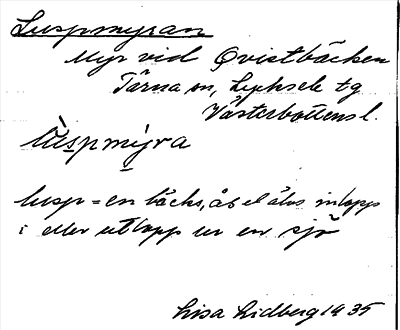 Luspmyran
Myr vid Qvistbäcken
Tärna sn, Lycksele tg
Västerbottens l.
lùspmyra
lusp = en bäcks, å el älvs inlopp
i eller utlopp ur en sjö
Lisa Lidberg 1935